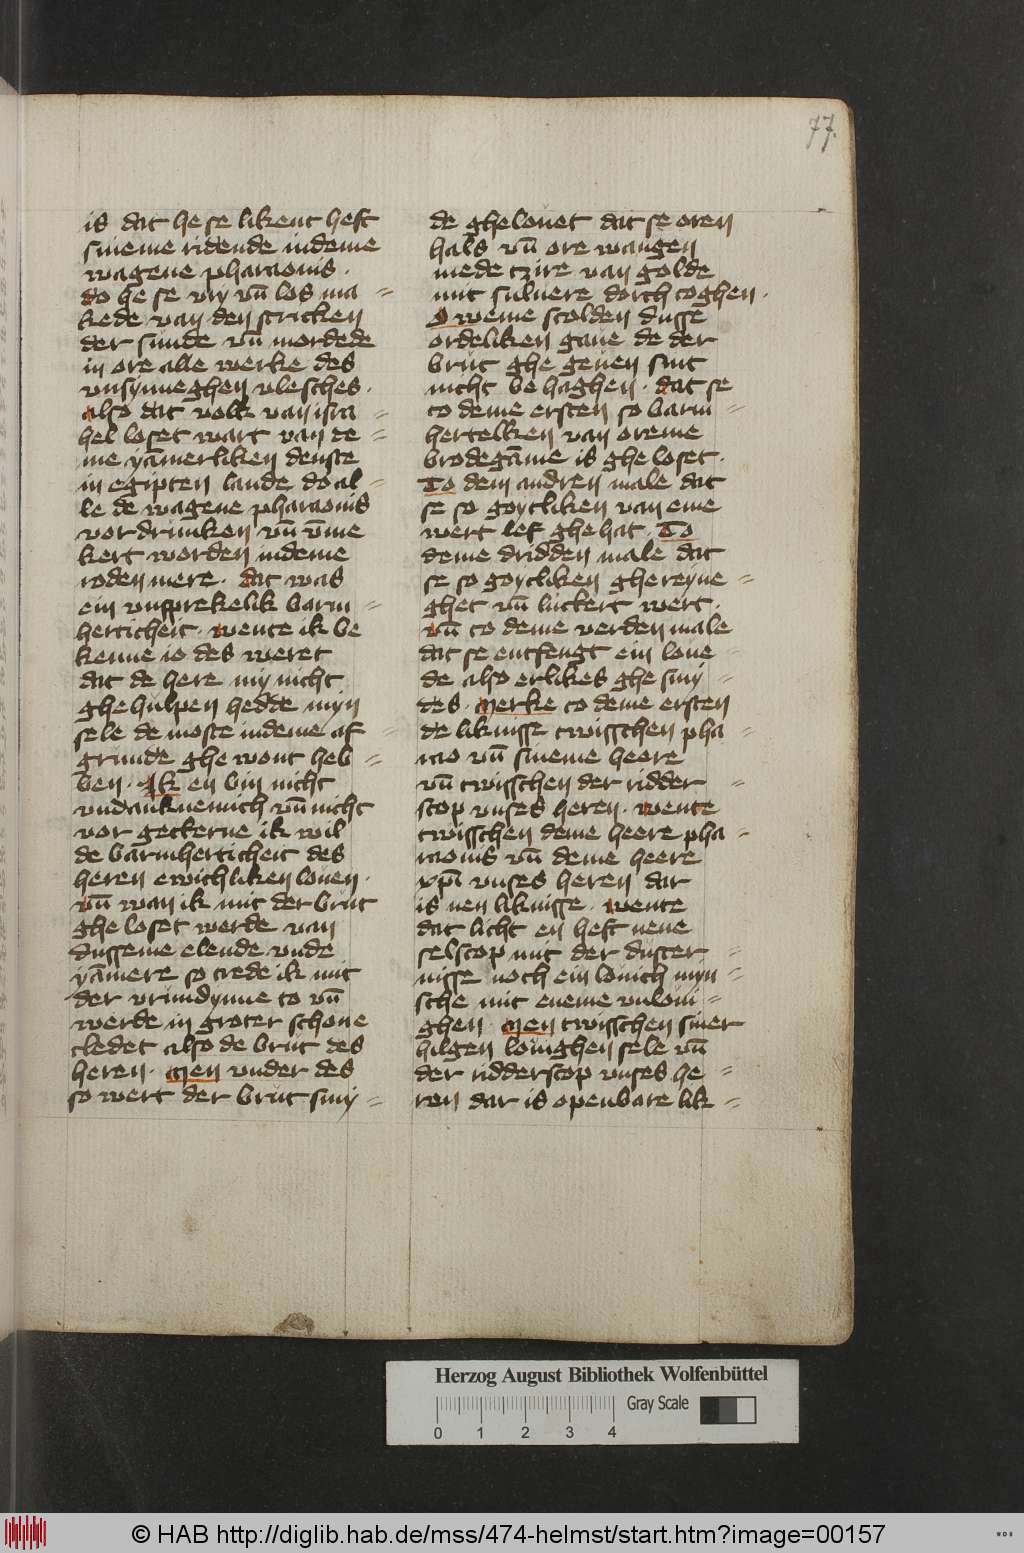 77.
is dat he se likent heft
sineme ridende indeme
wagene pharaonis .
do he se vry vn̄ los ma =
kede van den stricken
der sunde vn̄ mordede
in ore alle werke des
vnsynneghen vlesches .
also dat volk van isra =
hel loset wart van de =
me yāmerliken denste
in egipten lande do al =
le de wagene pharaonis
vordrunken vn̄ v̄me
kert worden indeme
roden mere . dat was
ein vnsprekelik barm =
herticheit . wente ik be
kenne io des weret
dat de here my nicht
ghehulpen hedde myn
sele de moste indeme af =
grunde ghe wont heb =
ben . Ik en bin nicht
vndanknemich vn̄ nicht
vor geckerne ik wil
de barmherticheit des
heren ewichliken louen .
vn̄ wan ik mit der brut
ghe loset werde van
dusseme elende vnde
yāmere so trede ik mit
der vrundynne to vn̄
werde in groter schone
cledet also de brut des
heren . Men vnder des
so wert der brut siny =
de ghelouet dat se oren
hals vn̄ ore wangen
mede tzire van golde
mit suluere dorch toghen .
O weme scolden dusse
ordeliken gaue de der
brut ghe geuen sint
nicht be haghen . dat se
to deme ersten so barm =
hertelken van oreme
brodegāme is ghe loset .
To dem andren male dat
se so goytliken van eme
wert lef ghe hat . To
deme dridden male dat
se so goytliken ghereyne =
ghet vn̄ luckert wert .
vn̄ to deme verden male
dat se entfengt ein loue =
de also erlikes ghe smy =
des . Merke to deme ersten
de liknisse twisschen pha =
rao vn̄ sineme heere
vn̄ twisschen der ridder =
scop vnses heren . wente
twisschen deme heere pha =
raonis vn̄ deme heere
xp̄i vnses heren dar
is nen liknisse . wente
dat licht en heft nene
selscop mit der duster =
nisse noch ein louich myn =
sche mit eneme vnloui =
ghen . Men twisschen siner
hilgen louighen sele vn̄
der ridderscop vnses he =
ren dar is openbare lik =
Herzog August Bibliothek Wolfenbüttel
Gray Scale
0 1 2 3 4
© HAB http://diglib.hab.de/mss/474-helmst/start.htm?image=00157